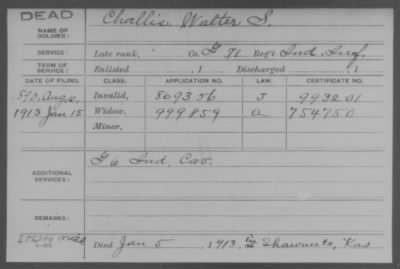 DEAD
NAME OF SOLDIER:
Challis, Walter S.
SERVICE:
Late rank, Co. G 71 Reg't Ind. Inf.
TERM OF SERVICE:
Enlisted , 1 Discharged , 1
DATE OF FILING. CLASS. APPLICATION NO. LAW. CERTIFICATE NO.
Aug. 6, Invalid, 869356 J 993201
1913 Jan 15 Widow, 999859 a 754750
Minor,
ADDITIONAL SERVICES:
G 6 Ind. Cav.
REMARKS:
Died Jan 5, 1913, Shawnee Co, Kas